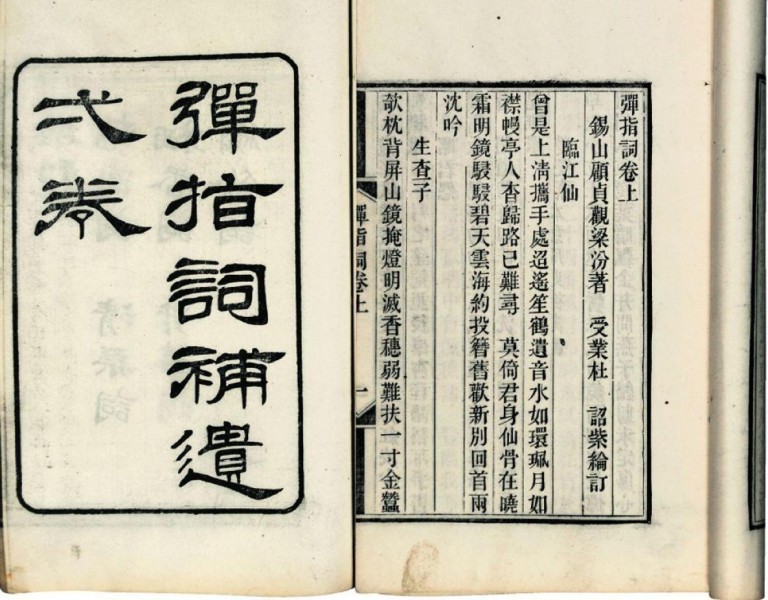 彈指詞卷上
錫山顧貞觀梁汾著 受業杜 詔紫綸訂
臨江仙
曾是上清攜手處迢遙笙鶴遺音水如環珮月如
襟幔亭人杳歸路已難尋 莫倚君身仙骨在曉
霜明鏡駸駸碧天雲海約投簪舊歡新別回首兩
沈吟
生查子
欹枕背屏山鏡掩燈明滅香穗弱難扶一寸金蠶
彈指詞卷上 一
彈指詞補遺
弌卷